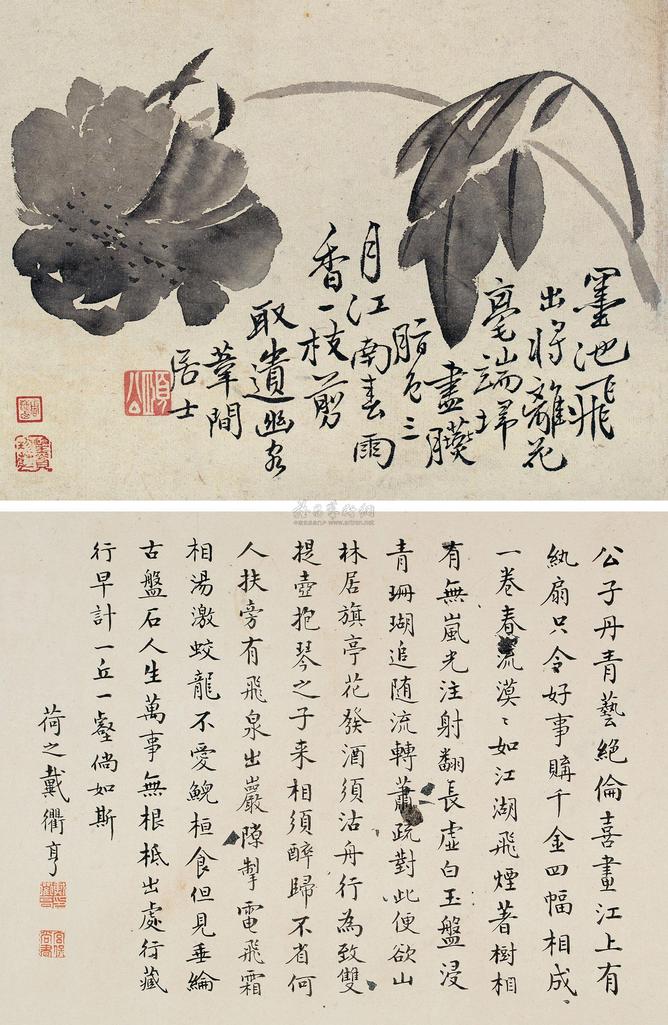 墨池飛
出將離花
亳端埽
盡臙
脂色三
月江南春雨
香一枝剪
取遺幽客
葦間
居士
雅昌藝術網
公子丹青藝絕倫喜畫江上有
紈扇只令好事購千金四幅相成
一卷春流漠〻如江湖飛煙著樹相
有無嵐光注射翻長虛白玉盤浸
青珊瑚追随流轉蕭疏對此便欲山
林居旗亭花發酒須沽舟行為致雙
提壺抱琴之子来相須醉歸不省何
人扶旁有飛泉出巖隙掣電飛霜
相湯激蛟龍不愛鯢桓食但見垂綸
古盤石人生萬事無根柢出處行藏
行早計一丘一壑倘如斯
荷之戴衢亨